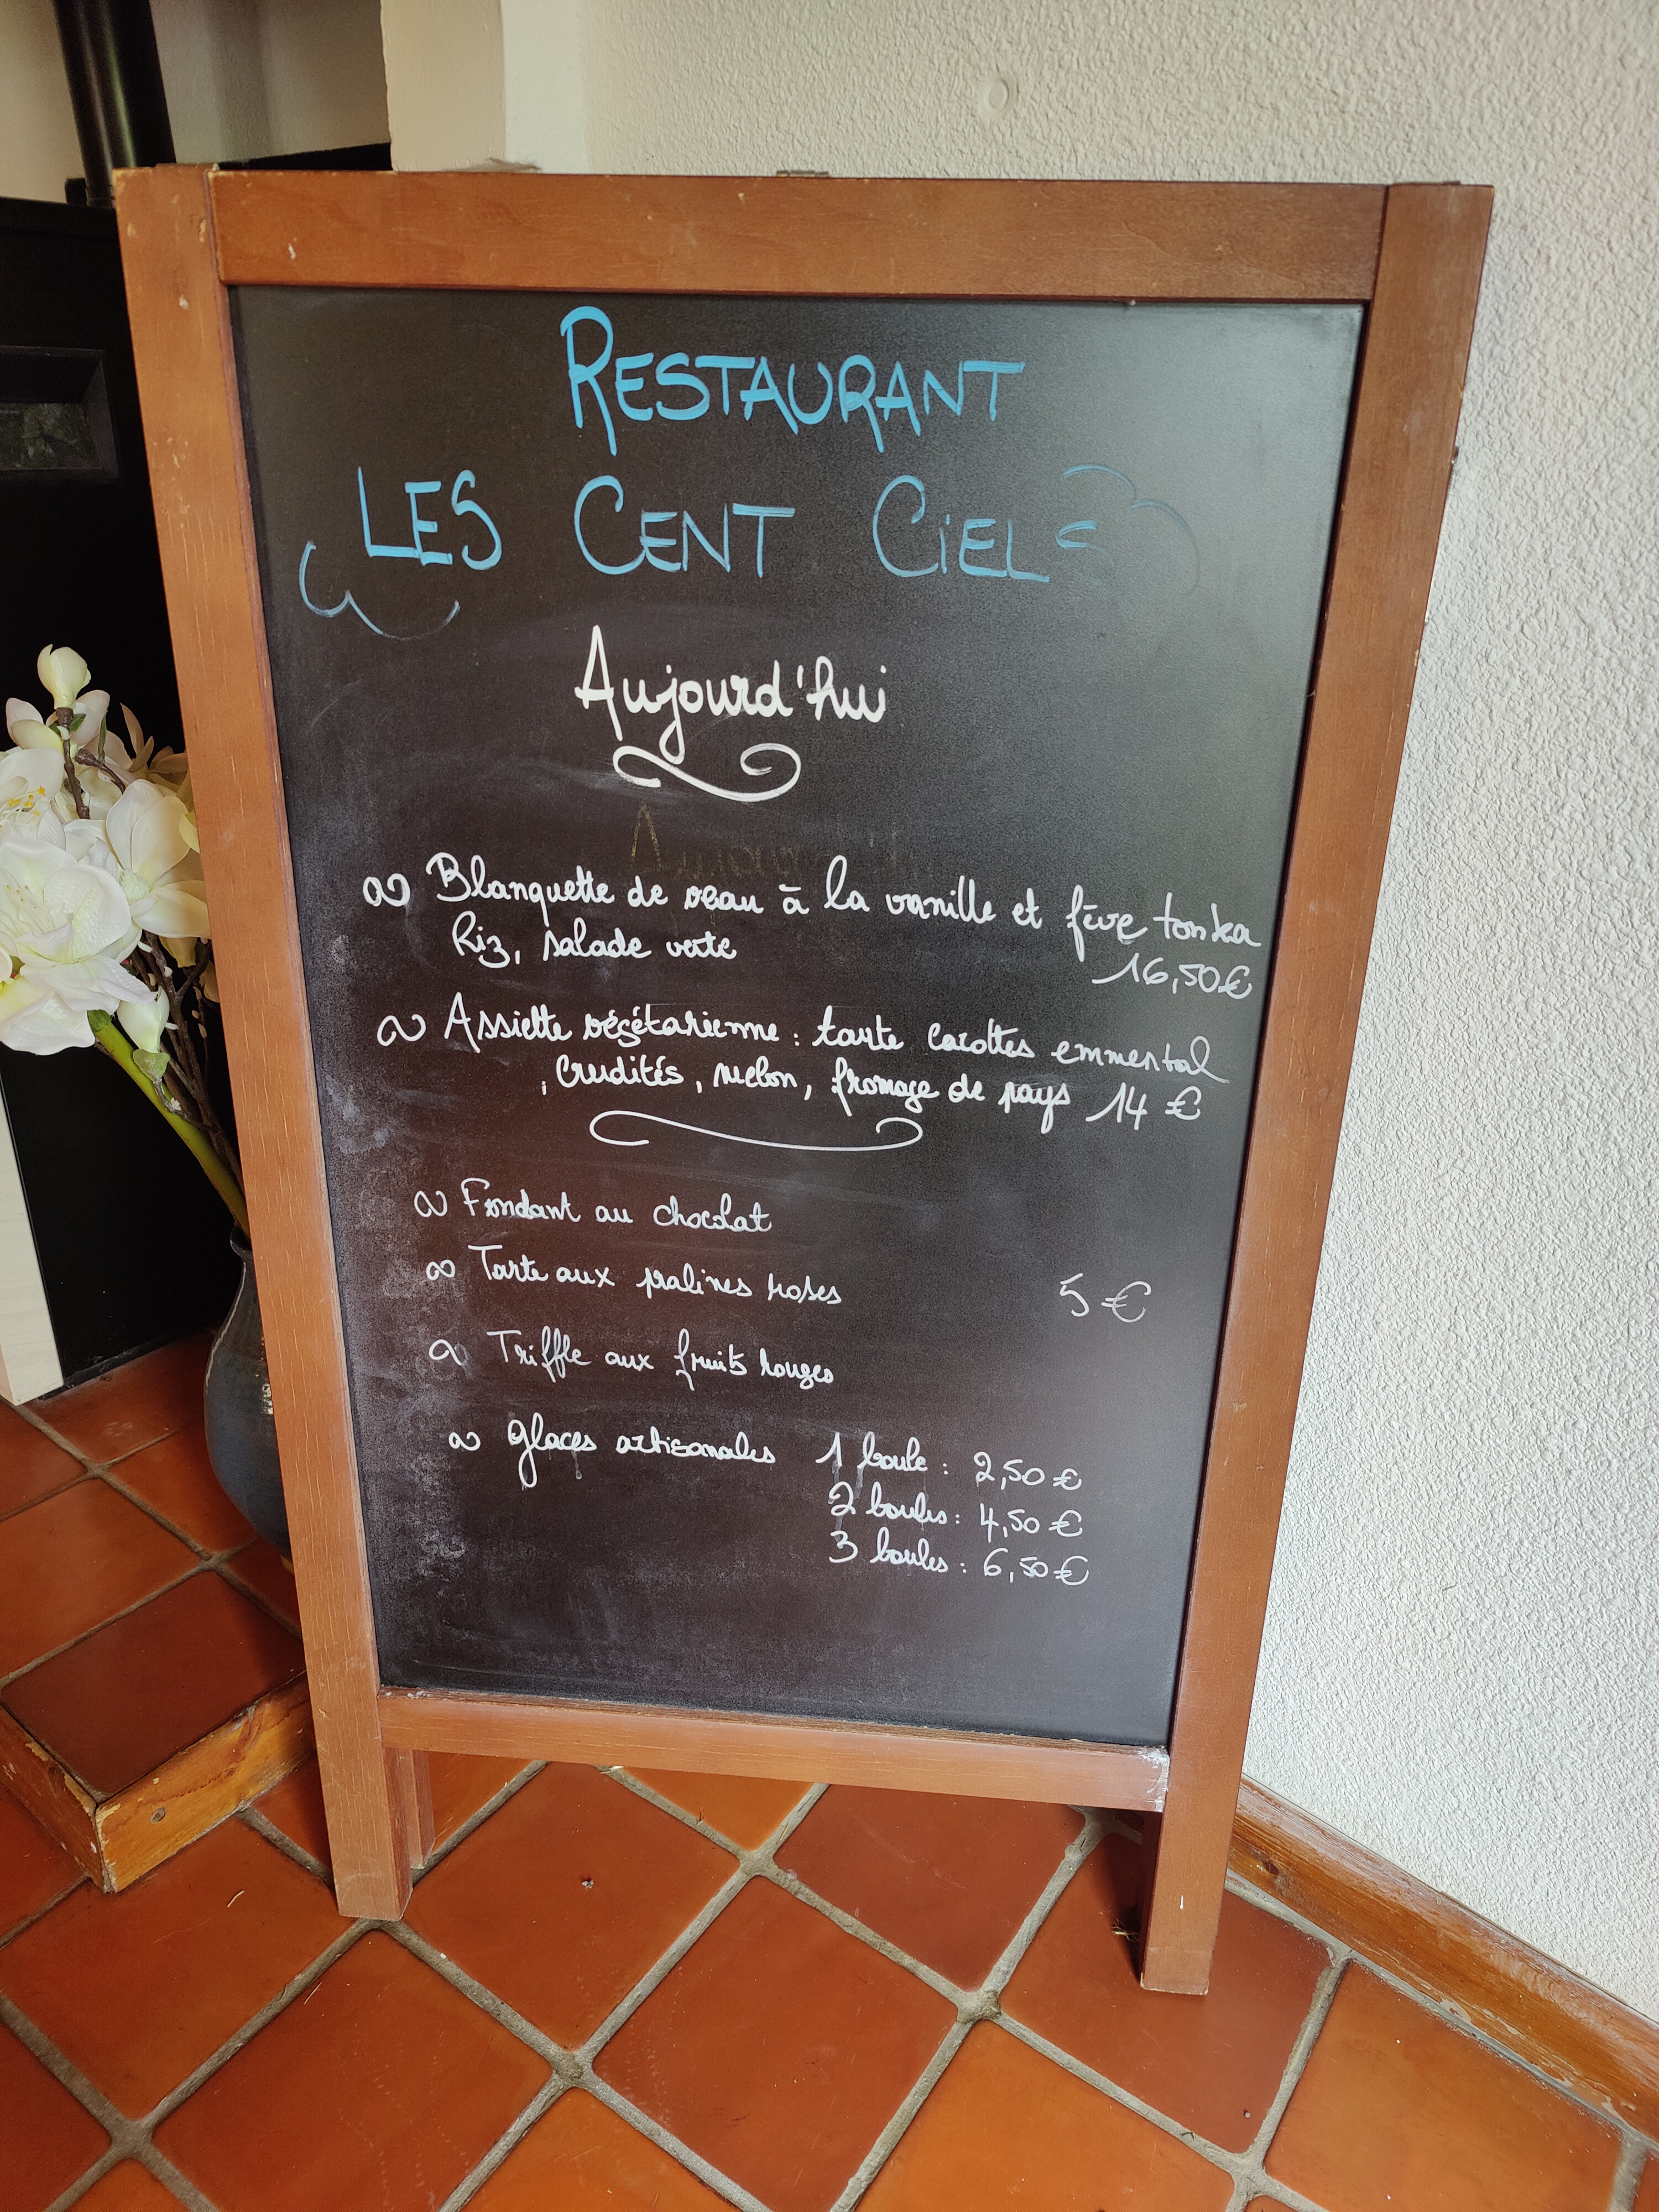 RESTAURANT
LES CENT CIELS
Aujourd'hui
Blanquette de veau à la vanille et fève tonka
Riz, salade verte
16,50€
Assiette végétarienne : tarte carottes emmental
, crudités, melon, fromage de pays 14 €
Fondant au chocolat
Tarte aux pralines roses
5 €
Triffle aux fruits rouges
Glaces artisanales 1 boule : 2,50 €
2 boules : 4,50 €
3 boules : 6,50 €